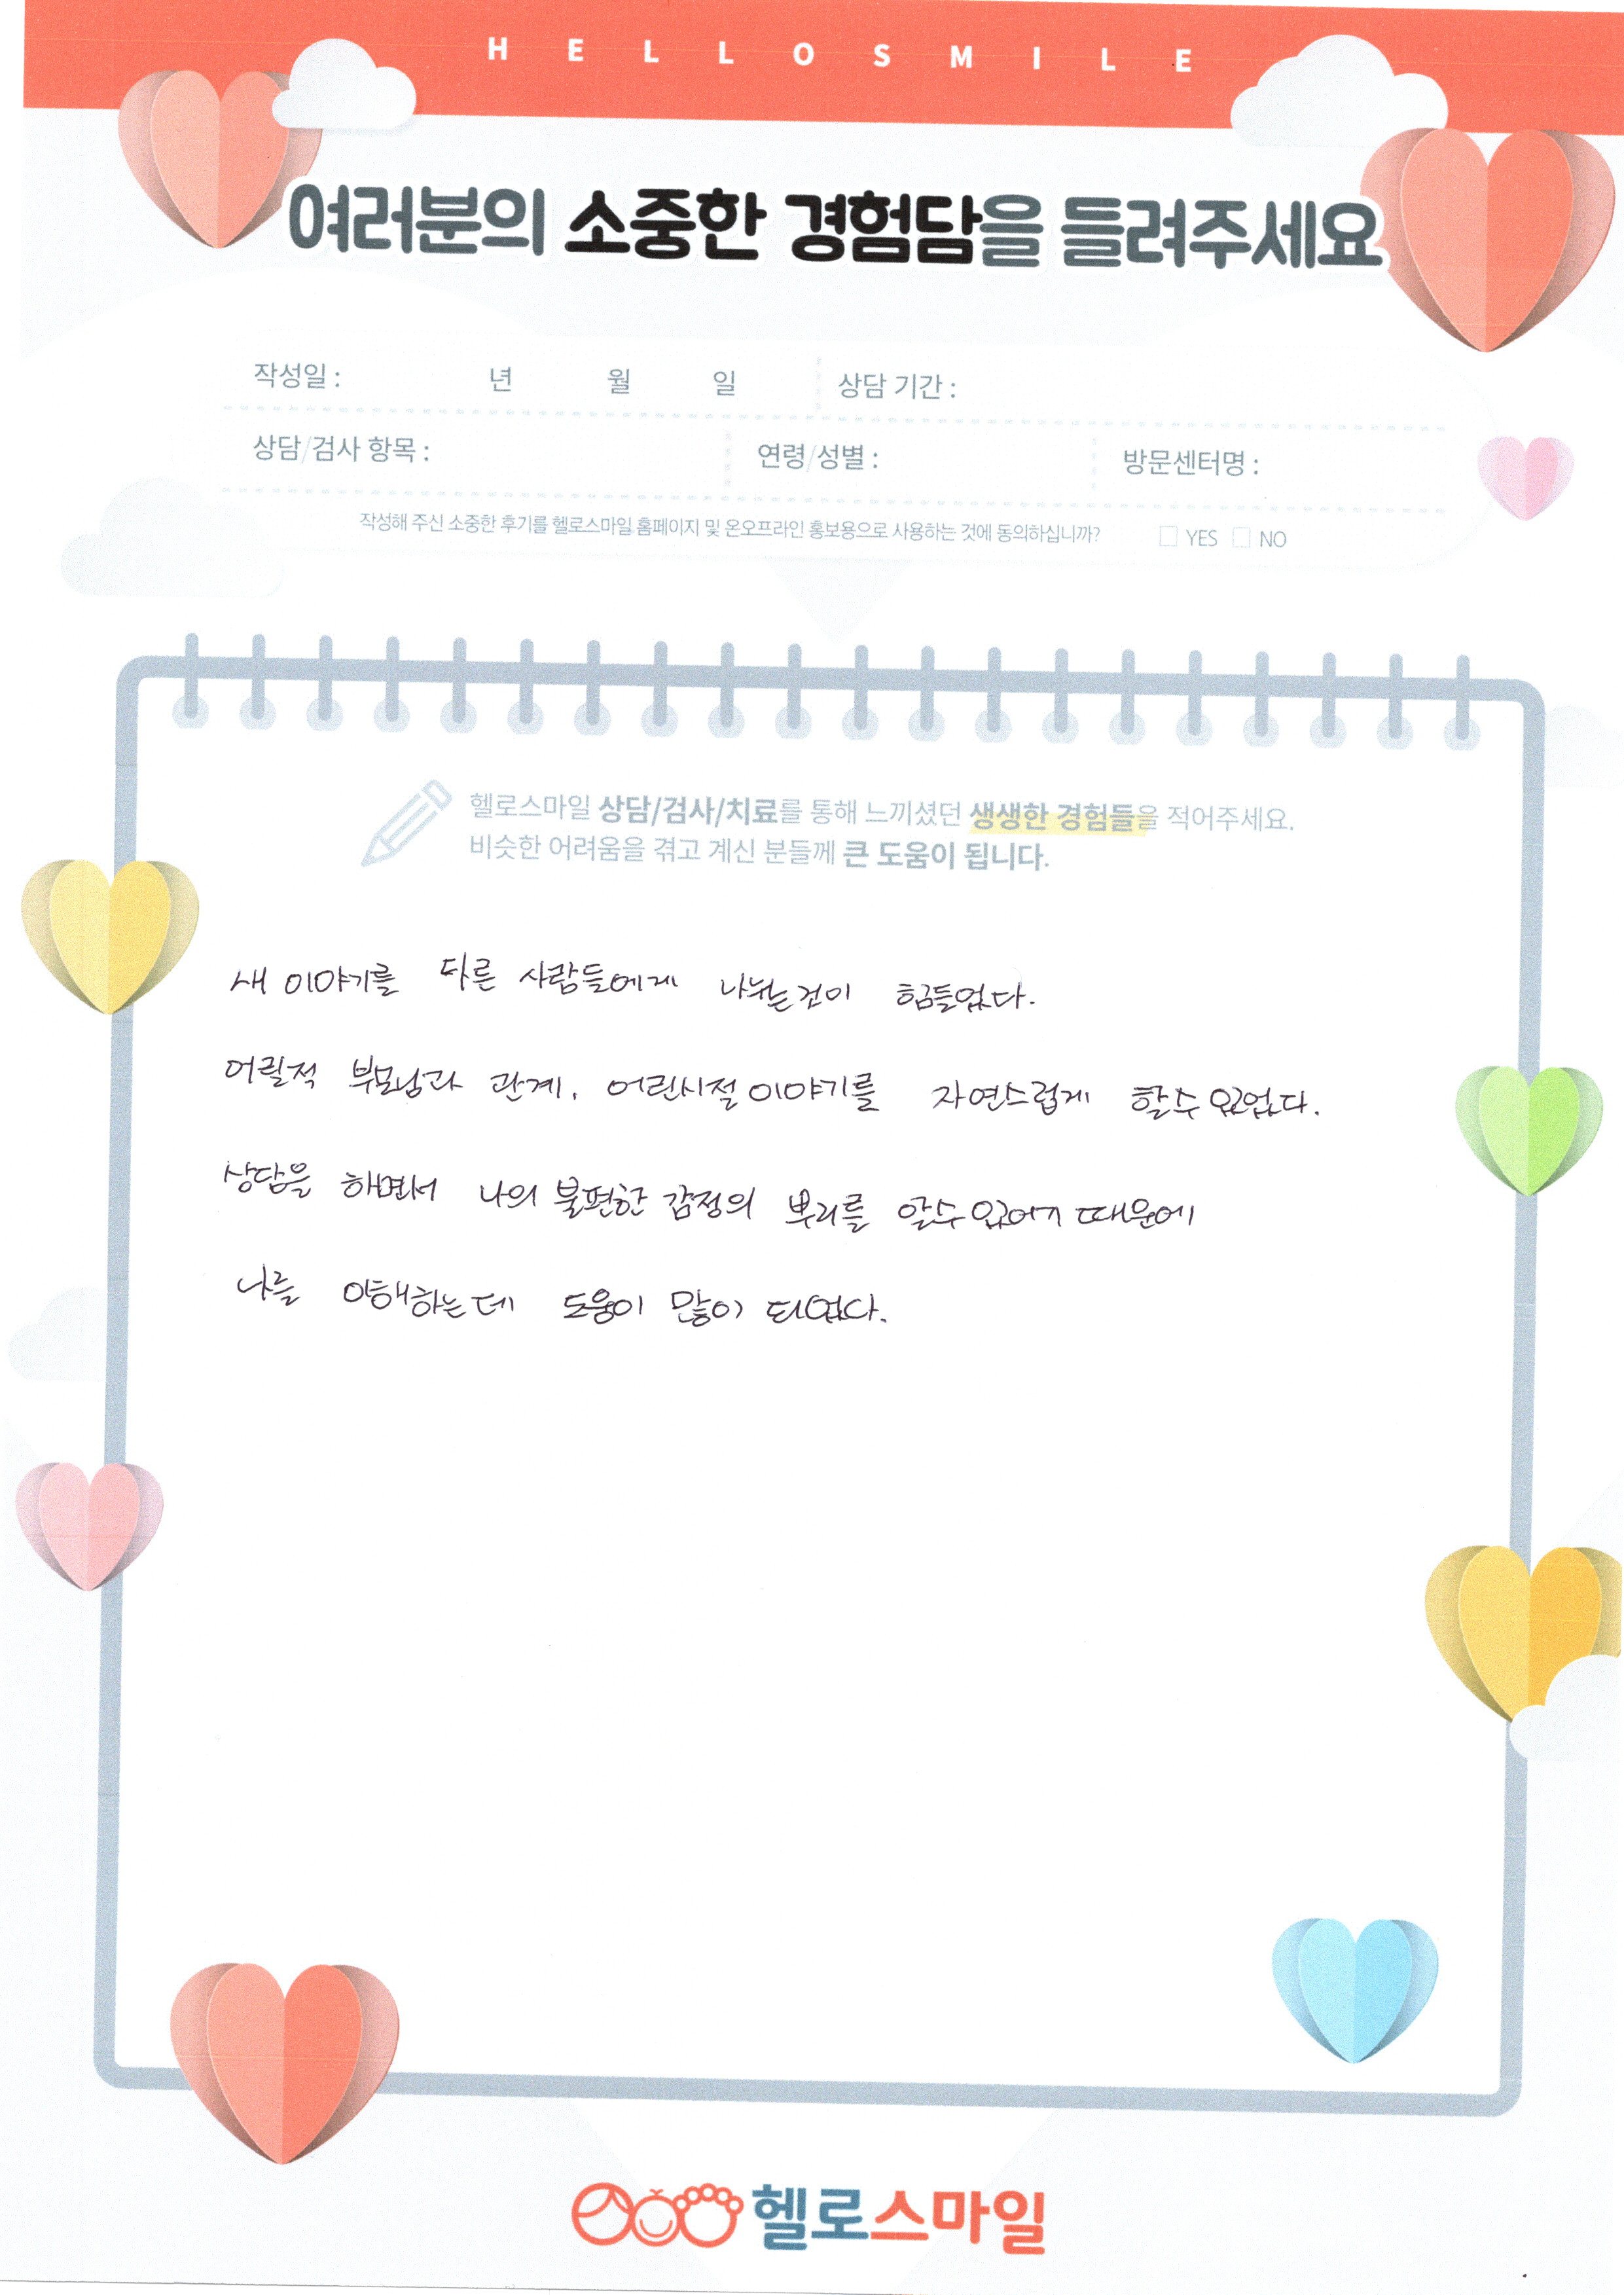 HELLOSMILE
여러분의 소중한 경험담을 들려주세요
작성일 : 년 월 일 상담 기간 :
상담/검사 항목 : 연령/성별 : 방문센터명 :
작성해 주신 소중한 후기를 헬로스마일 홈페이지 및 온오프라인 홍보용으로 사용하는 것에 동의하십니까? YES NO
헬로스마일 상담/검사/치료를 통해 느끼셨던 생생한 경험들을 적어주세요.
비슷한 어려움을 겪고 계신 분들께 큰 도움이 됩니다.
내 이야기를 다른 사람들에게 나눠는것이 힘들었다.
어릴적 부모님과 관계, 어린시절 이야기를 자연스럽게 할수 있었다.
상담을 하면서 나의 불편한 감정의 뿌리를 알수 있어기 때문에
나를 이해하는데 도움이 많이 되었다.
헬로스마일